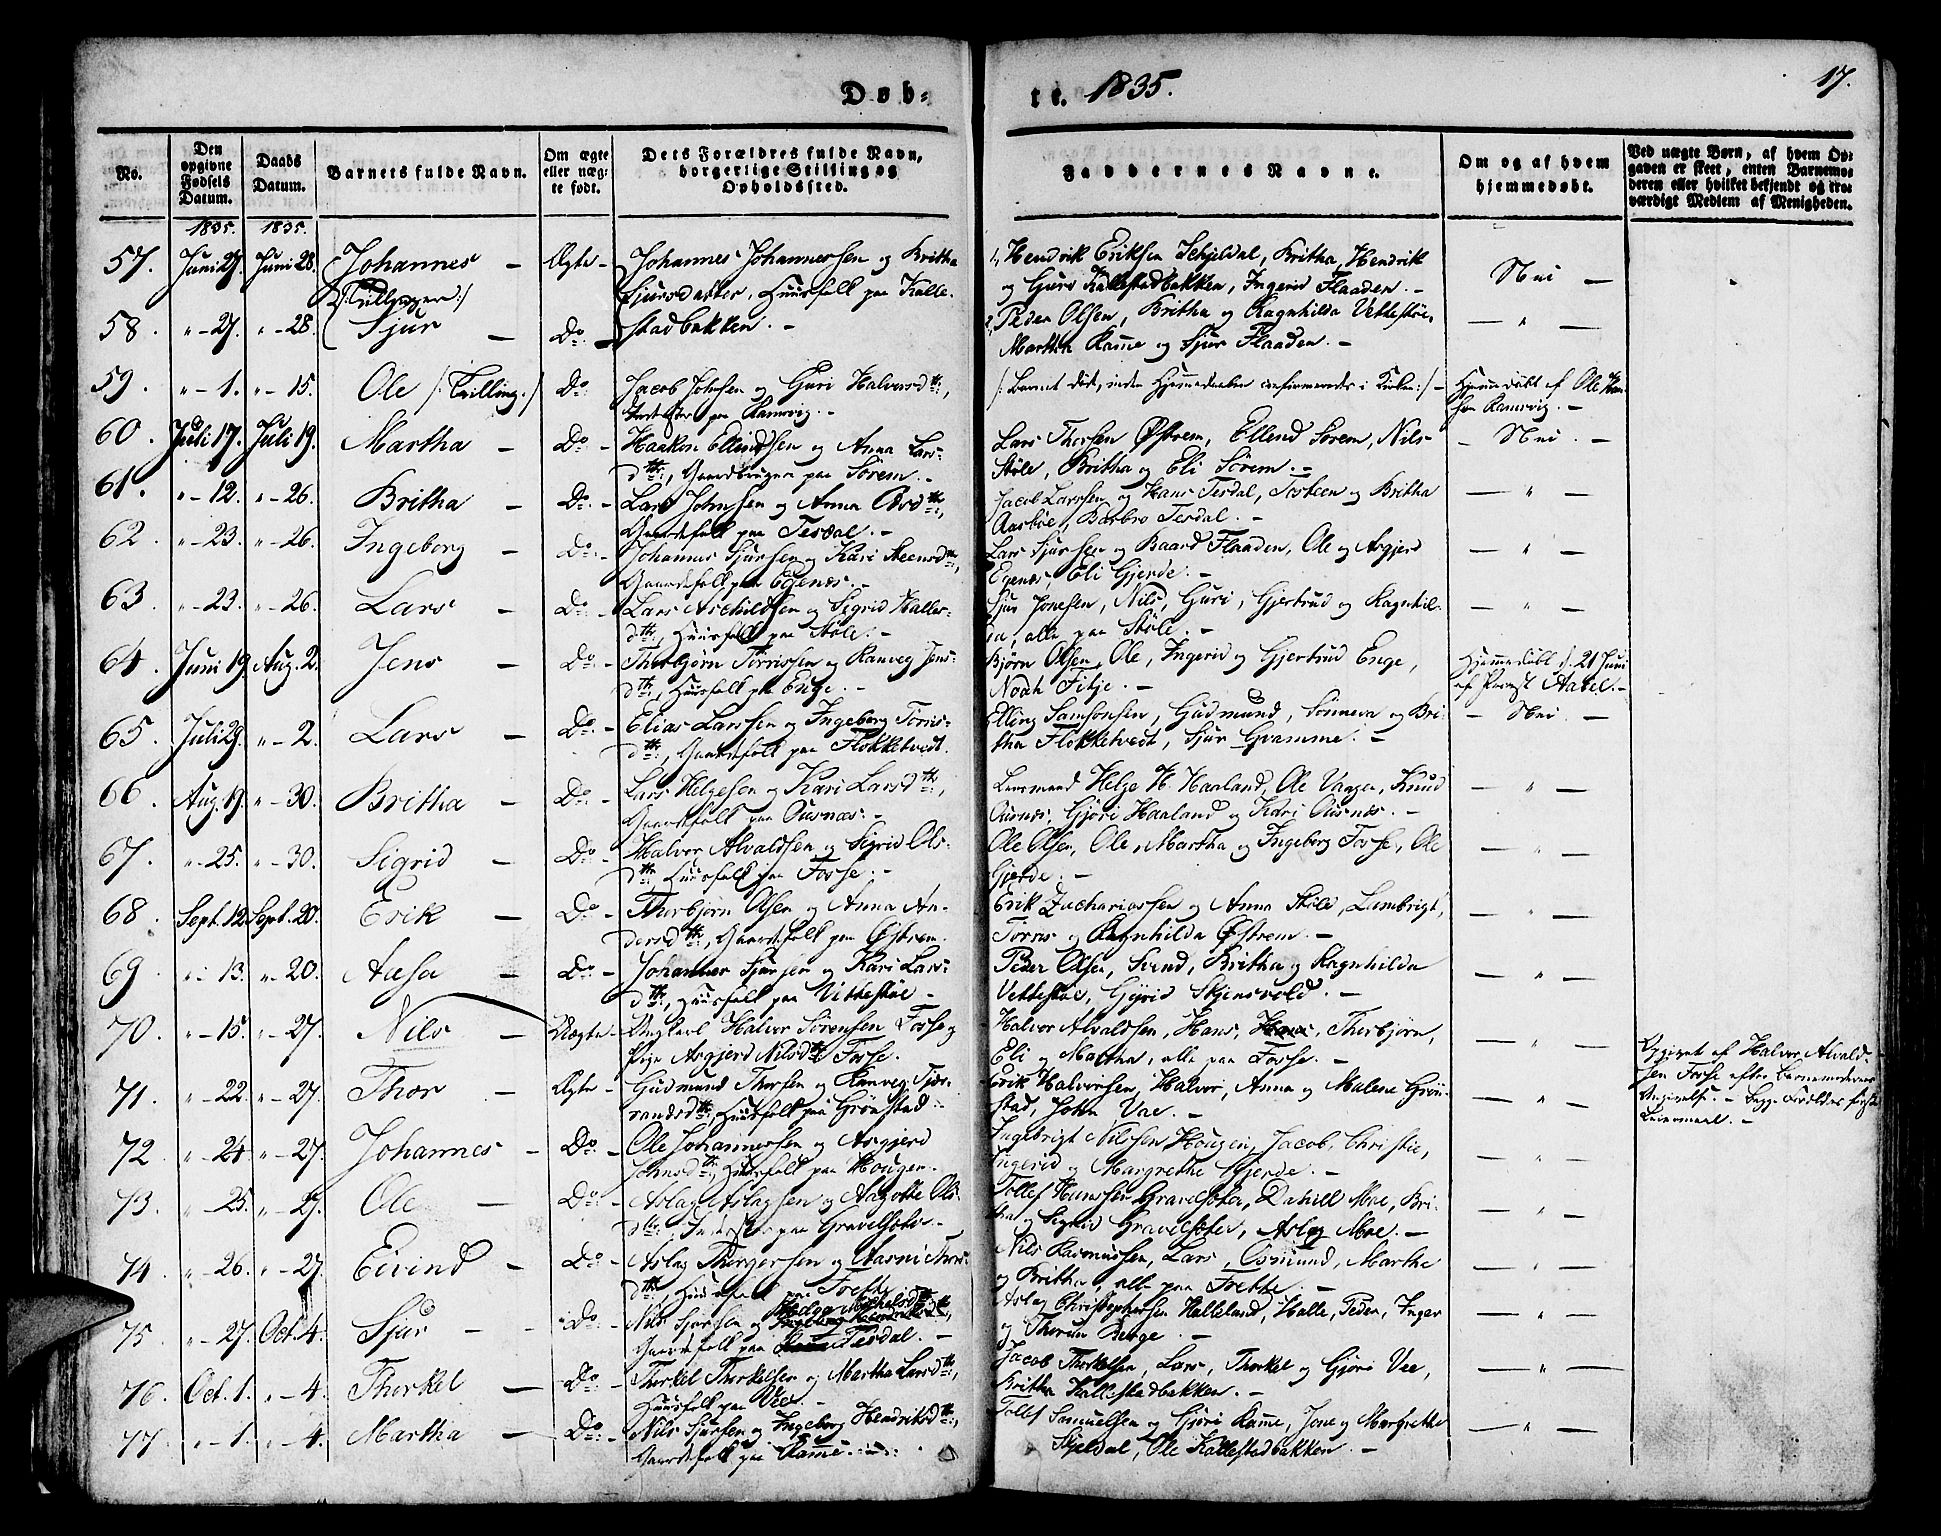 Døb-
te. 1835.
17.
No.
Den opgivne Fødsels Datum.
Daabs Datum.
Barnets fulde Navn.
Om ægte eller uægte født.
Dets Forældres fulde Navn, borgerlige Stilling og Opholdssted.
Faddernes Navne.
Om og af hvem hjemmedøbt.
Ved uægte Børn, af hvem Opgaven er skeet, enten Barnemoderen eller hvilket bekjendt og troværdigt Medlem af Menigheden.
1835. 1835.
57. Juni 27. Juni 28. Johannes - Ægte - Johannes Johannessen og Britha
Sjursdatter, Huusfolk paa Kalle-
1, Hendrik Eriksen Schjeldal, Britha, Hendrik
og Guro Kallestadbakken, Ingerid Flaaden. -
Nei -
(:Tvillinger:)
58. " - 27. " - 28. Sjur - Do stadbakken. -
2, Peder Olsen, Britha og Ragnhilda Vettestøe,
Martha Ramme og Sjur Flaaden. -
- " -
59. " - 1. " - 15. Ole (:Tvilling:) Do Jacob Johnsen og Guri Halvorsdtr,
Inderster paa Ramsvig. -
(:Barnet døde, inden Hjemmedaaben confirmeredes i Kirken:) -
Hjemmedøbt af Ole
Ramsvig. -
60. Juli 17. Juli 19. Martha - Do - Haakon Ellendsen og Anna Lars-
dtr, Gaardbruger paa Sørem. -
Lars Thorsen Østrem, Ellend Sørem, Nils
Støle, Britha og Eli Sørem. -
- Nei. -
61. " - 12. " - 26. Britha - Do - Lars Johnsen og Anna
Gaardsfolk paa Tesdal. -
Jacob Larssen og Hans Tesdal, Tosteen og Britha
Aasbøe, Barbro Tesdal. -
- " -
62. " - 23. " - 26. Ingeborg - Do - Johannes Sjursen og Kari Steensdtr,
Gaardsfolk paa Egenæs. -
Lars Sjursen og Baard Flaaden, Ole og Asgjerd
Egenæs, Eli Gjerde. -
- " -
63. " - 23. " - 26. Lars - Do - Lars Aschildsen og Sigrid Halles-
dtr, Huusfolk paa Støle. -
Sjur Jonesen, Nils, Guri, Gjertrud og Ragnhil-
da, alle paa Støle. -
- " -
64. Juni 19. Aug. 2. Jens - Do - Thorbjørn Torrissen og Ranveg Jens-
dtr, Huusfolk paa Enge. -
Bjørn Olsen, Ole, Ingerid og Gjertrud Enge,
Noah Fitje. -
Hjemmedøbt d. 21 Juni
af Provst Aabel. -
65. Juli 29. " - 2. Lars - Do - Elias Larssen og Ingeborg Torris-
dtr, Gaardsfolk paa Flokketvedt.
Elling Samsonsen, Gudmund, Sønneva og Bri-
tha Flokketvedt, Sjur Gramme. -
- Nei. -
66. Aug. 19. " - 30. Britha - Do - Lars Helgesen og Kari Larsdtr,
Gaardsfolk paa Ousnæs. -
Lensmand Helge H. Haaland, Ole Vaage, Knud
Ousnæs, Gjøri Haaland og Kari Ousnæs. -
- " -
67. " - 25. " - 30. Sigrid - Do - Halvor Alvaldsen og Sigrid Ols-
dtr, Huusfolk paa Fosse. -
Ole Olsen, Ole, Martha og Ingeborg Fosse, Ole
Gjerde. -
- " -
68. Sept. 12. Sept. 20. Erik - Do - Thorbjørn Olsen og Anna An-
dersdtr, Gaardsfolk paa Østrem.
Erik Zachariassen og Anna Støle, Lambrigt,
Torris og Ragnhilda Østrem. -
- " -
69. " - 13. " - 20. Aasa - Do - Johannes Sjursen og Kari Lars-
dtr, Huusfolk paa Vettestøe -
Peder Olsen, Svend, Britha og Ragnhilda
Vettestøe, Gjørid Skjensvold. -
- " -
70. " - 15. " - 27. Nils - Uægte - Ungkarl Halvor Sørensen Fosse og
Pige Asgjerd Nilsdtr Fosse.
Halvor Alvaldsen, Hans, Thorbjørn,
Eli og Martha, alle paa Fosse. -
- " -
Opgivet af Halvor Alvald-
sen Fosse efter Barnemoderens
Angivelse. - Begge Forældres første
Leiermaal. -
71. " - 22. " - 27. Thor - Ægte - Gudmund Thorsen og Ranveg Tjer-
randsdtr, Huusfolk paa Grønstad.
Erik Halvorsen, Halvor, Anna og Malene Grøn-
stad, John Vae. -
- " -
72. " - 24. " - 27. Johannes - Do - Ole Johannessen og Asgjerd
Johnsdtr, Huusfolk paa Hougen.
Ingebrigt Nilssen Hougen, Jacob, Christie,
Ingerid og Margrethe Gjerde. -
- " -
73. " - 25. " - 27. Ole - Do - Aslag Aslagsen og Aagothe Ols-
dtr, Inderster paa Gravelsæter. -
Tollef Hanssen Gravelsæter, Moe, Bri-
tha og Sigrid Gravelsæter, Aslag Moe. -
- " -
74. " - 26. " - 27. Eivind - Do - Aslag Thorgersen og Aasni Thors-
dtr, Huusfolk paa Frette.
Nils Rasmussen, Lars, Osmund, Martha
og Britha, alle paa Frette. -
- " -
75 " - 27. Oct. 4. Sjur - Do - Nils Sjursen og Helga Michelsdtr,
Gaardsfolk paa Tesdal. -
Aslag Christophersen Halleland, Halle, Peder, Inger
og Thorun Berge. -
"
76. Oct. 1. " - 4. Thorkel - Do - Thorkel Thorkelsen og Martha Larsdtr,
Huusfolk paa Vee. -
Jacob Thorkelsen, Lars, Thorkel og Gjøri Vee,
Britha Kallestadbakken. -
- " -
77. " - 1. " - 4. Martha - Do - Nils Sjursen og Ingeborg Hendriksdtr,
Gaardsfolk paa Ramme. -
Tollef Samuelsen og Gjøri Ramme, Jone og Margrethe
Skjeldal, Ole Kallestadbakken. -
- " -